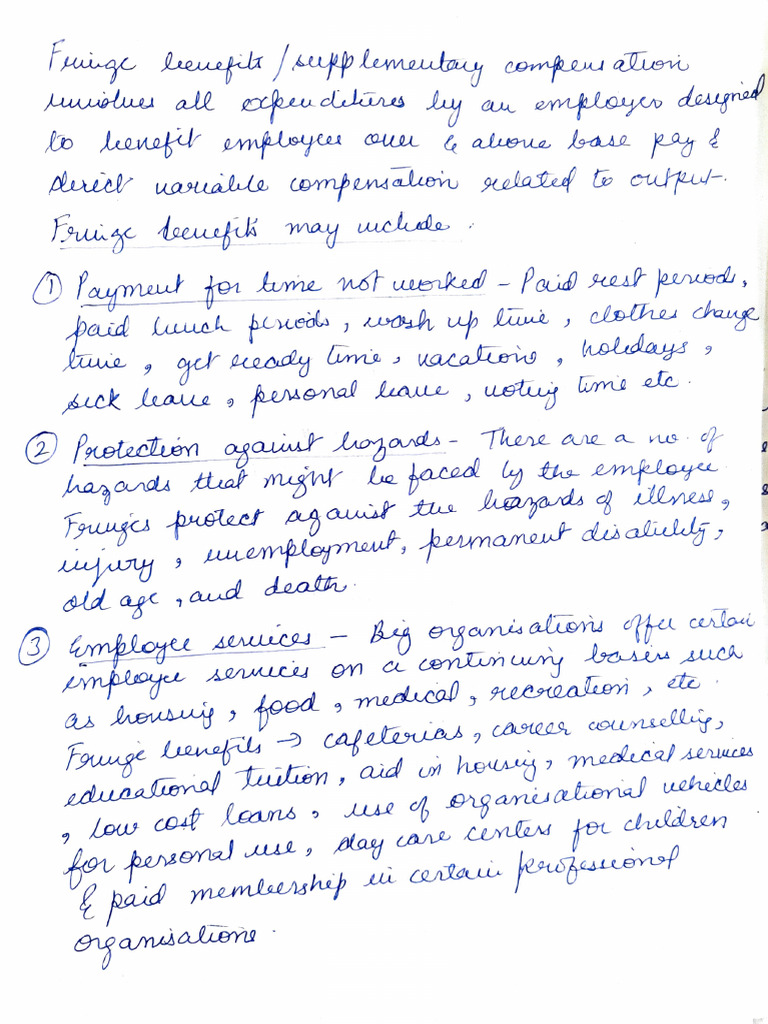 Fringe benefits / supplementary compensation
involves all expenditures by an employer designed
to benefit employee over & above base pay &
direct variable compensation related to output.
Fringe benefits may include.
① Payment for time not worked - Paid rest periods,
paid lunch periods, wash up time, clothes change
time, get ready time, vacations, holidays,
sick leave, personal leave, voting time etc.
② Protection against hazards - There are a no. of
hazards that might be faced by the employee.
Fringes protect against the hazards of illness,
injury, unemployment, permanent disability,
old age, and death.
③ Employee services - Big organisations offer certain
employee services on a continuing basis such
as housing, food, medical, recreation, etc
Fringe benefits → cafeterias, career counselling,
educational tuition, aid in housing, medical services
, low cost loans, use of organisational vehicles
for personal use, day care centers for children
& paid membership in certain professional
organisations.